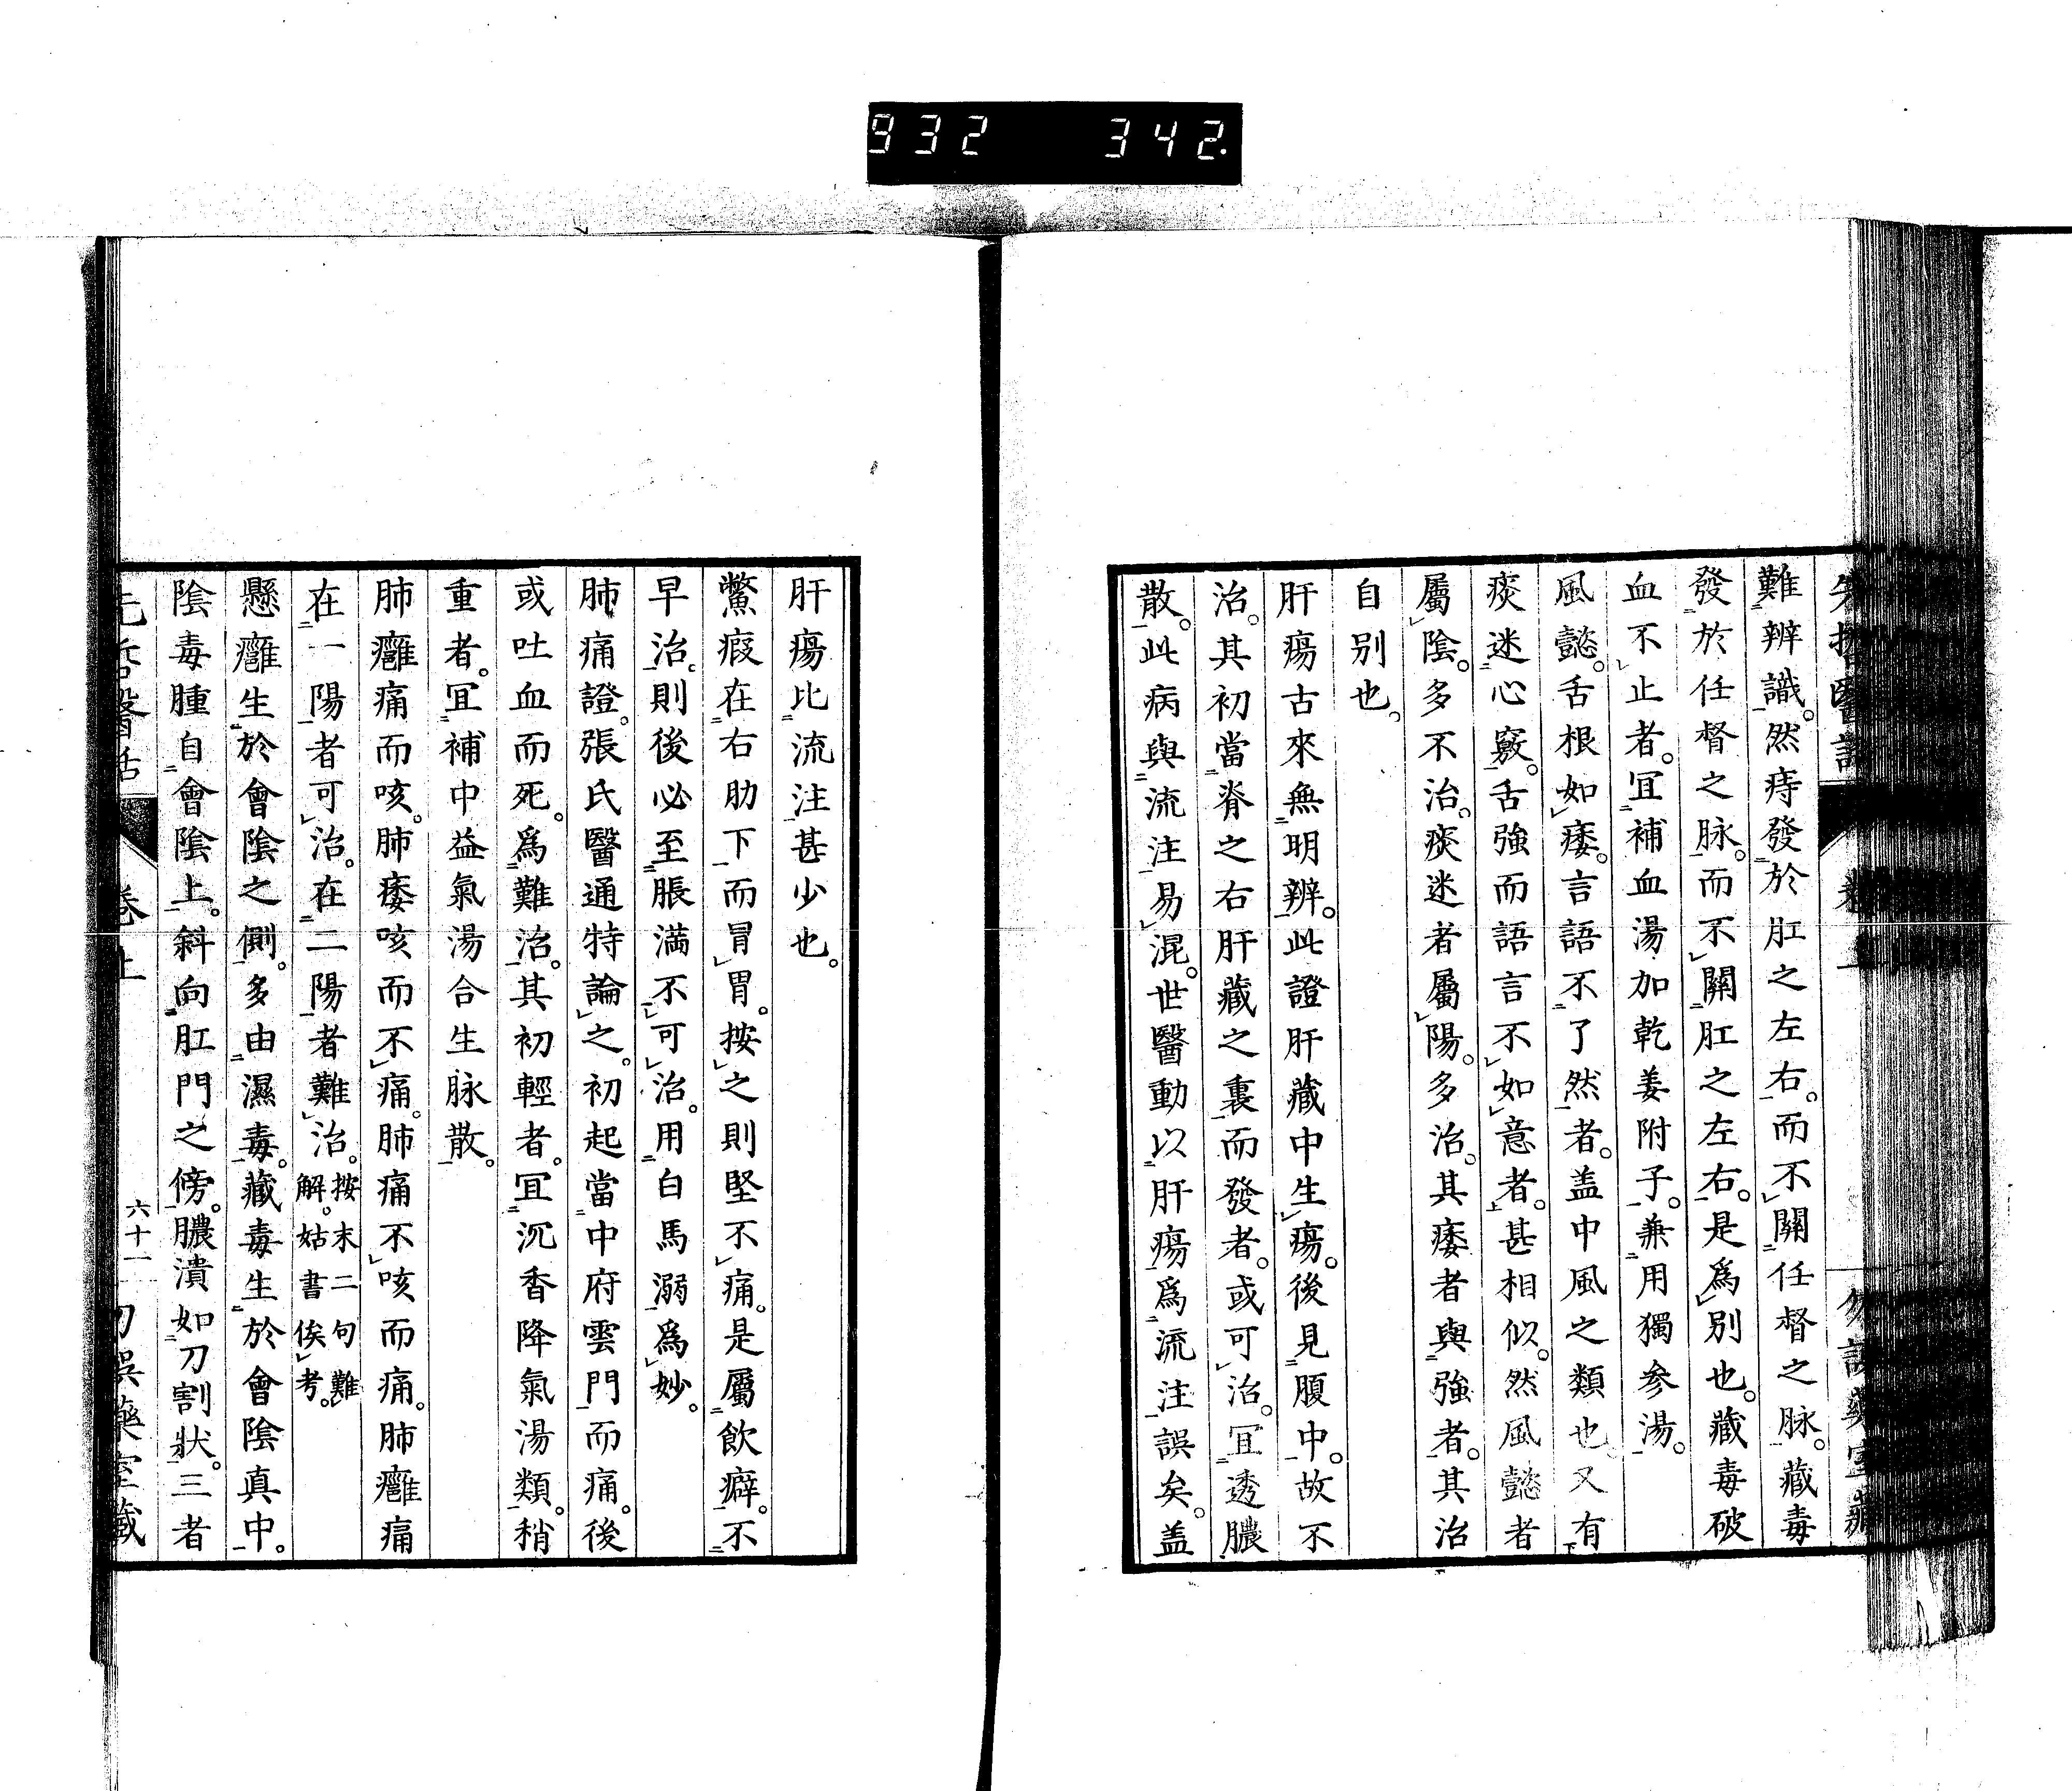 932 342.
難辨識。然痔發於肛之左右。而不關任督之脉。藏毒
發於任督之脉。而不關肛之左右。是爲別也。藏毒破
血不止者。冝補血湯加乾姜附子。兼用獨參湯。
風懿。舌根如痿。言語不了然者。盖中風之類也。又有
痰迷心竅。舌強而語言不如意者。甚相似。然風懿者
屬陰。多不治。痰迷者屬陽。多治。其痿者與強者。其治
自別也。
肝瘍古來無明辨。此證肝藏中生瘍。後見腹中。故不
治。其初當脊之右肝藏之裏而發者。或可治。冝透膿
散。此病與流注易混。世醫動以肝瘍爲流注誤矣。盖
肝瘍比流注甚少也。
鱉瘕在右肋下而冒胃。按之則堅不痛。是屬飲癖。不
早治。則後必至脹滿不可治。用白馬溺爲妙。
肺痛證。張氏醫通特論之。初起當中府雲門而痛。後
或吐血而死。爲難治。其初輕者。冝沉香降氣湯類。稍
重者。冝補中益氣湯合生脉散。
肺癰痛而咳。肺痿咳而不痛。肺痛不咳而痛。肺癰痛
在一陽者可治。在二陽者難治。按末二句難解。姑書俟考。
懸癰生於會陰之側。多由濕毒。藏毒生於會陰真中。
陰毒腫自會陰上。斜向肛門之傍。膿潰如刀割狀。三者
先哲醫話 卷上 六十一 勿誤藥室藏